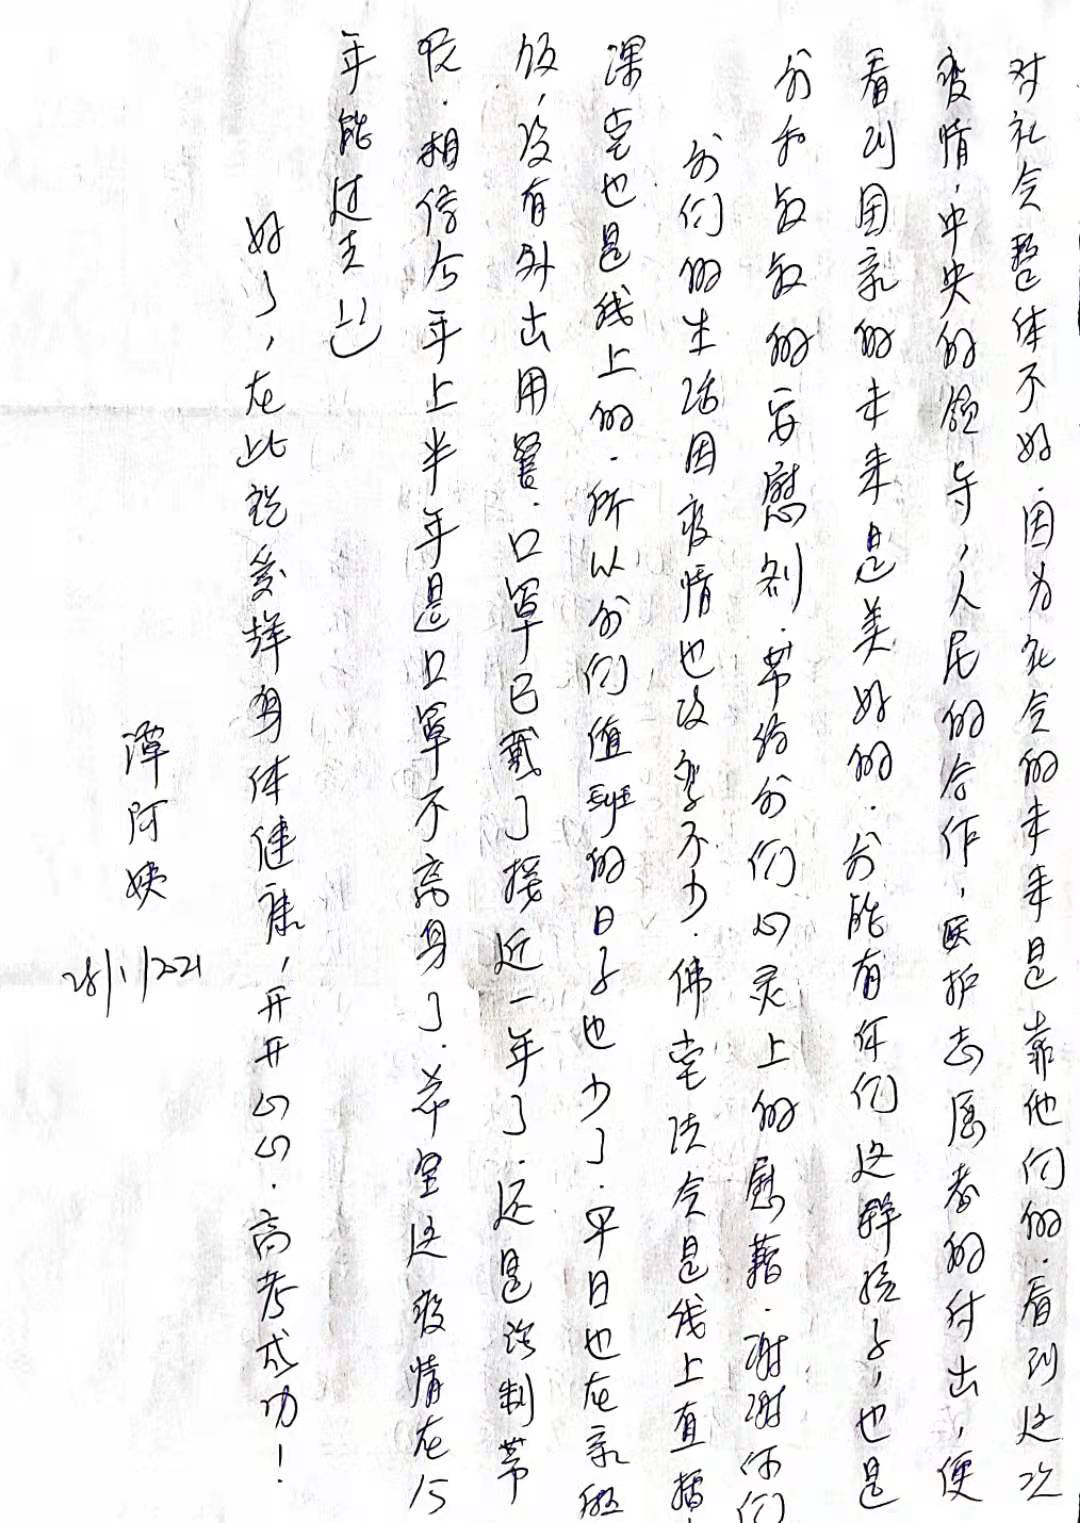 对社会整体不好.因为社会的未来是靠他们的.看到这次
疫情.中央的领导,人民的合作,医护志愿者的付出,便
看到国家的未来是美好的.我能有你们这群孩子,也是
我和叔叔的安慰剂.带给我们心灵上的慰藉.谢谢你们
我们的生活因疫情也改变不少.佛堂法会是线上直播
课堂也是线上的.所以我们值班的日子也少了.平日也在家
饭,没有外出用餐.口罩已戴了接近一年了.还是说
.相信今年上半年是口罩不离身了.希望这疫情在今
年能过去吧
好了,在此祝身体健康,开开心心.高考成功!
潭阿姨
28/1/2021